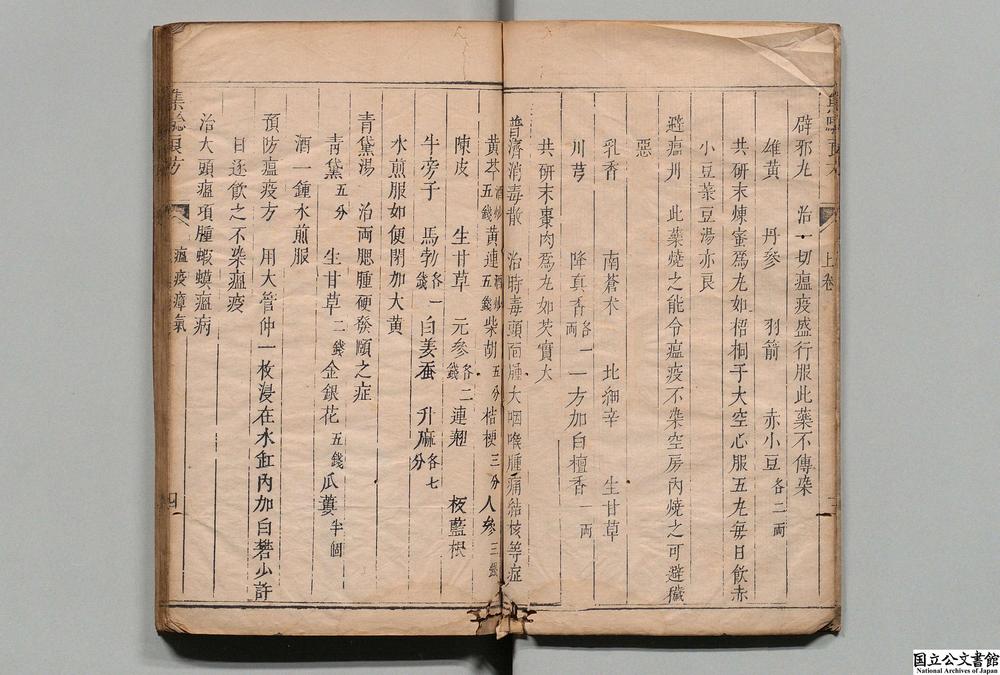 上卷
辟邪丸 治一切瘟疫盛行服此藥不傳染
雄黄 丹參 羽箭 赤小豆各二両
共研末煉蜜爲丸如梧桐子大空心服五丸每日飲赤
小豆菉豆湯亦良
避瘟丹 此藥燒之能令瘟疫不染空房内燒之可避穢
惡
乳香 南蒼朮 北細辛 生甘草
川芎 降真香各一両 一方加白檀香一両
共研末棗肉爲丸如芡實大
普濟消毒散 治時毒頭面腫大咽喉腫痛結核等症
黄芩酒炒五錢 黄連酒炒五錢 柴胡五分 桔梗三分 人參三錢
陳皮 生甘草 元參各二錢 連翹 板藍根
牛旁子 馬勃各一錢 白姜蚕 升麻各七分
水煎服如便閉加大黄
青黛湯 治両腮腫硬發頤之症
青黛五分 生甘草二錢 金銀花五錢 瓜蔞半個
酒一鍾水煎服
預防瘟疫方 用大管仲一枚浸在水缸内加白礬少許
日逐飲之不染瘟疫
治大頭瘟項腫蝦蟆瘟病
集驗良方 瘟疫瘴氣 四
国立公文書館
National Archives of Japan